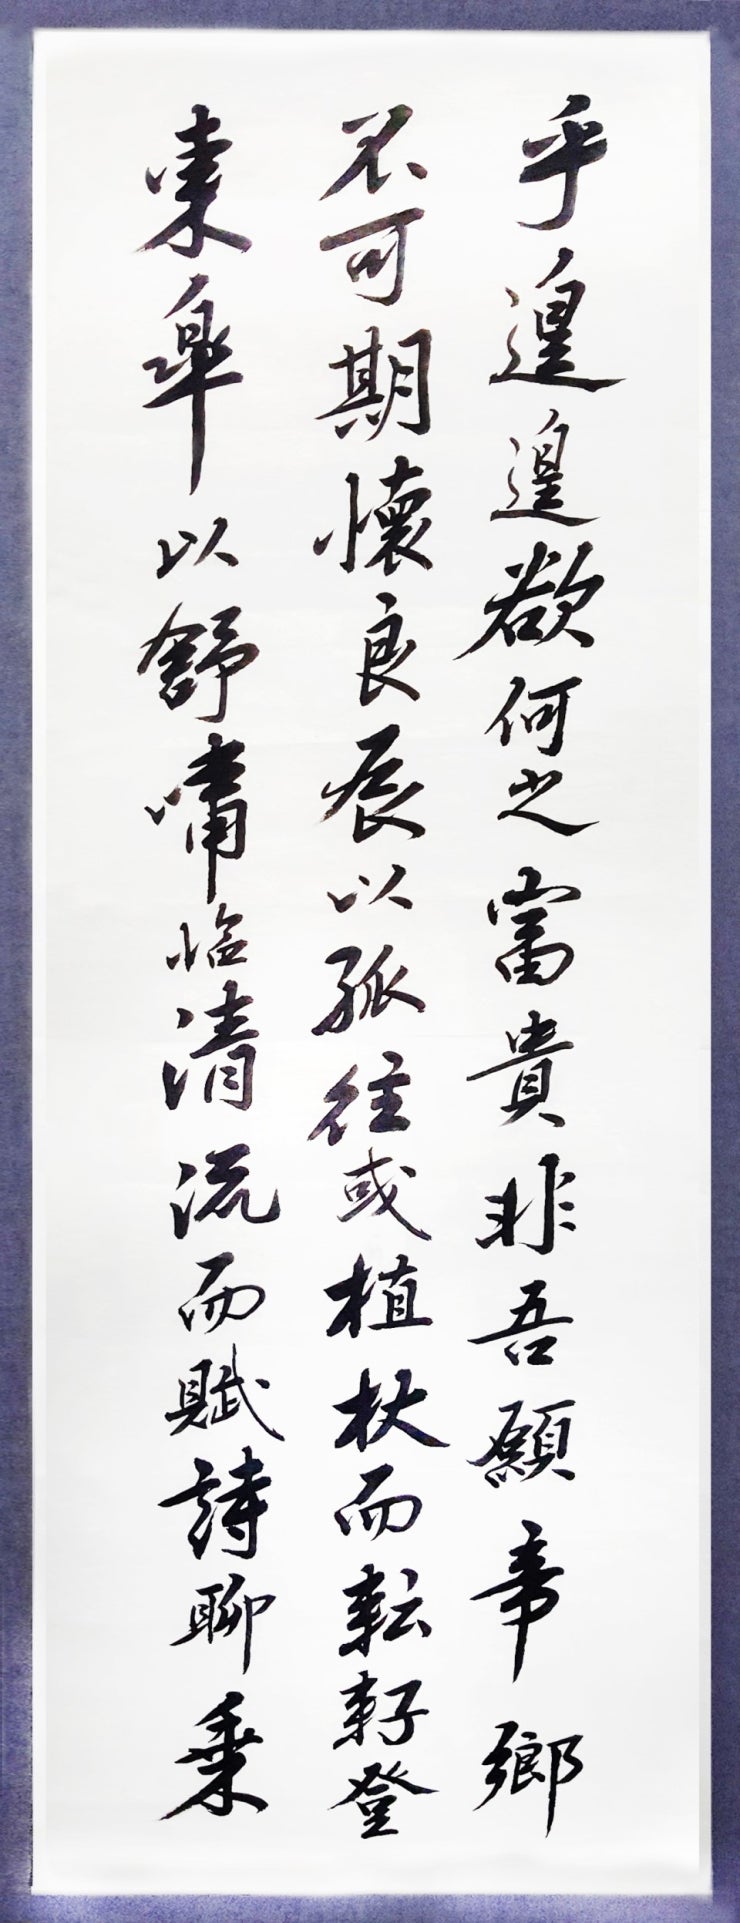 乎遑遑欲何之富貴非吾願帝鄉
不可期懷良辰以孤往或植杖而耘耔登
東皋以舒嘯臨清流而賦詩聊乗